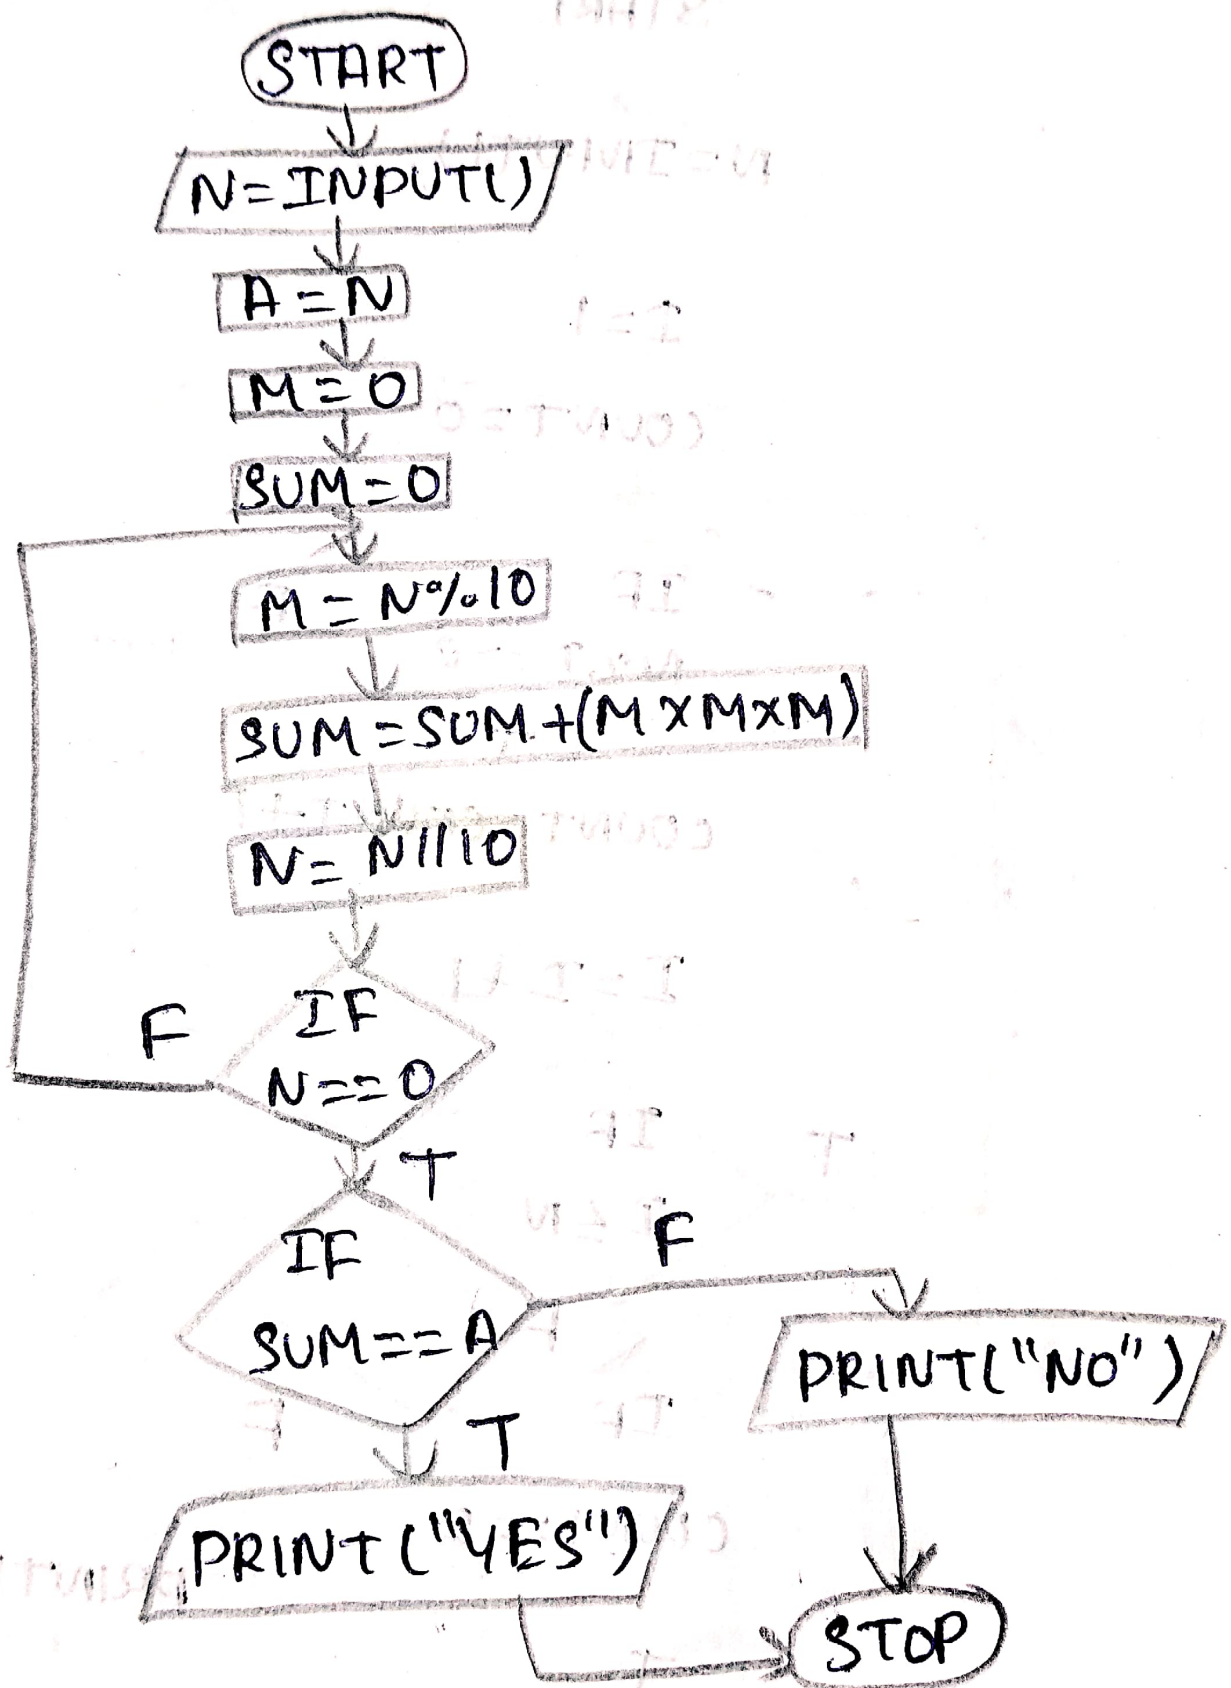 START
N=INPUT()
A=N
M=0
SUM=0
M=N%10
SUM=SUM+(MXMXM)
N=N//10
F
IF
N==0
T
IF
F
SUM==A
PRINT("NO")
T
PRINT("YES")
STOP